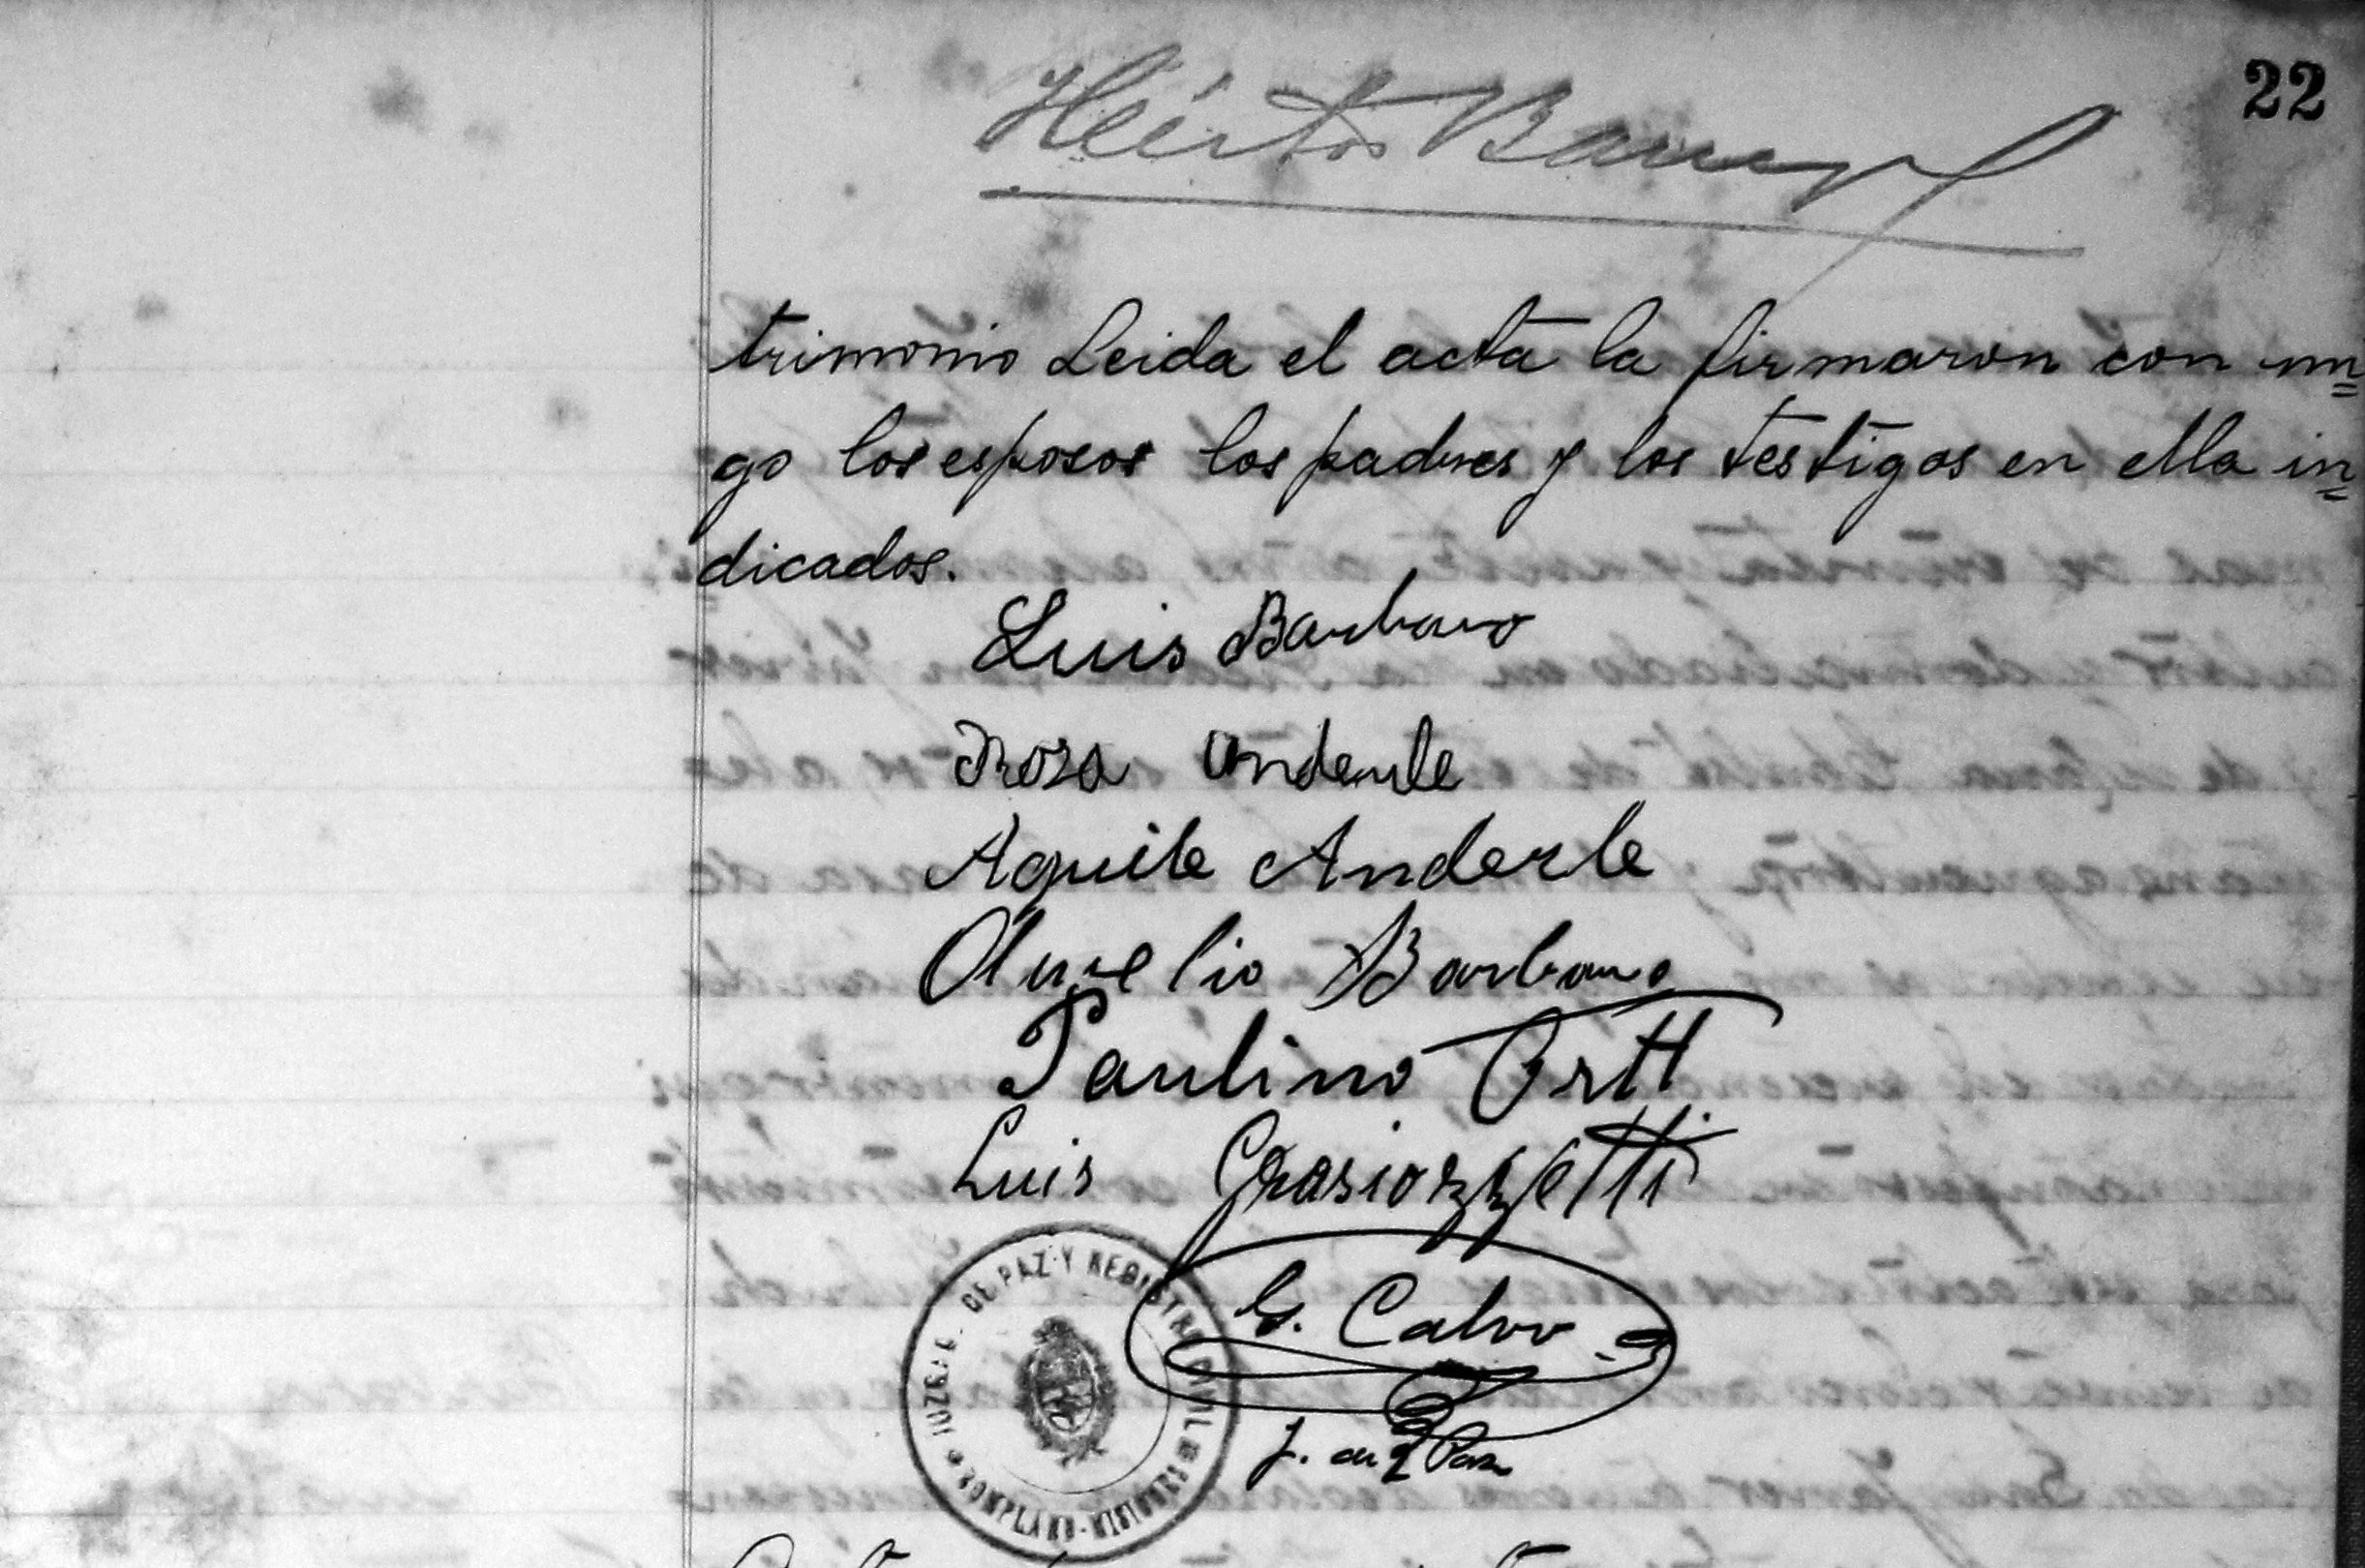 22
Héctor
trimonio Leida el acta la firmaron con mi=
go los esposos los padres y los testigos en ella in=
dicados.
Luis Barbaro
Rosa Anderle
Aquile Anderle
Aurelio Barbaro
Paulino Ortt
Luis Grasiozzetti
G. Calvo
J. de Paz
JUZGADO DE PAZ Y REGISTRO CIVIL
BOMPLAND-MISIONES